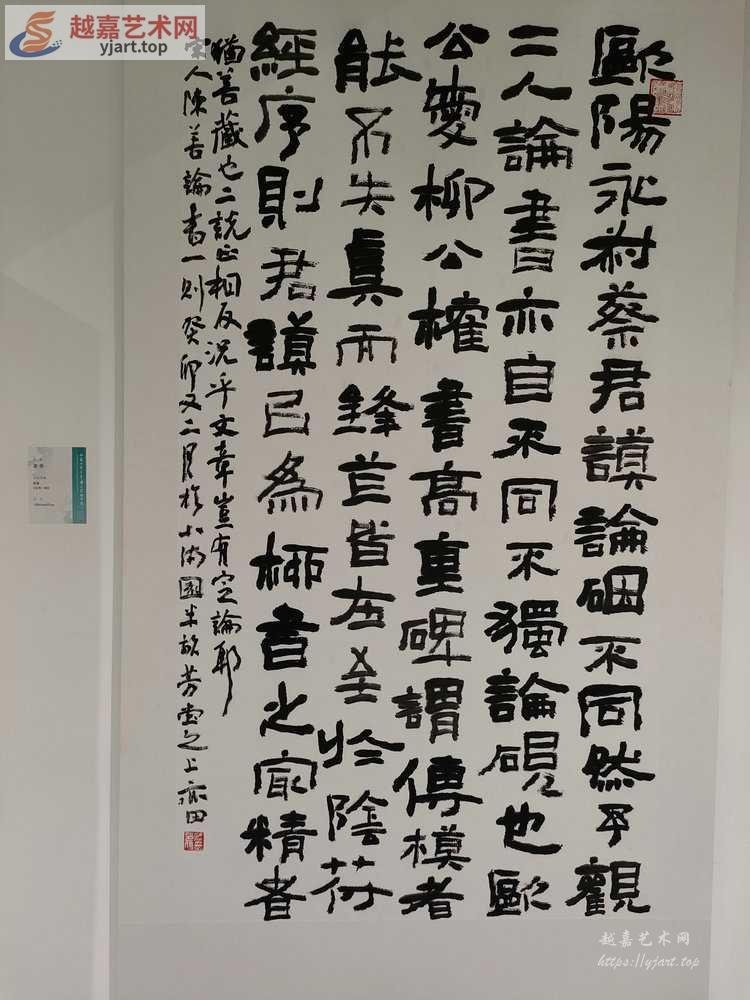 越嘉艺术网
yjart.top
歐陽永叔蔡君謨論硯不同然予觀
二人論書亦自不同不獨論硯也歐
公愛柳公權書高重碑謂傳模者
能不失真而鋒芒皆在至於陰符
經序則君謨已為柳書之最精者
猶善藏也二說正相反況乎文章豈有定論耶
宋人陳善論書一則癸卯又二月於小湖園米芳堂之上亦田
越嘉艺术网
https://yjart.top